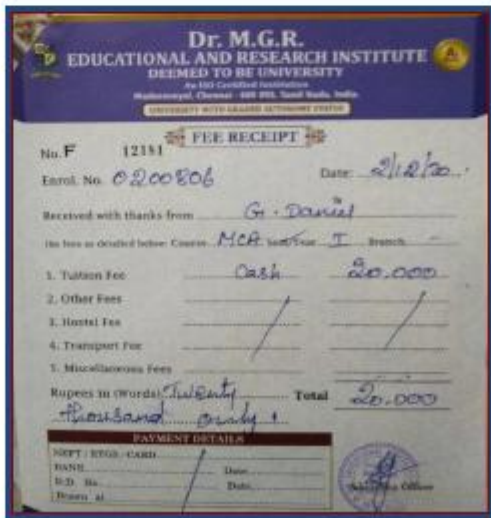 Dr. M.G.R.
EDUCATIONAL AND RESEARCH INSTITUTE
DEEMED TO BE UNIVERSITY
An ISO Certified Institution
Maduravoyal, Chennai - 600 095. Tamil Nadu. India.
UNIVERSITY WITH GRADED AUTONOMY STATUS
FEE RECEIPT
No. F 12181
Enrol. No. 0200806 Date: 2/12/20
Received with thanks from G. Daniel
the fees as detailed below: Course MCA Sem/Year I Branch -
1. Tuition Fee Cash 20.000
2. Other Fees
3. Hostel Fee
4. Transport Fee
5. Miscellaneous Fees
Rupees in (Words) Twenty Total 20.000
thousand only
PAYMENT DETAILS
NEFT / RTGS / CARD
BANK Date
D.D. No. Date
Drawn at Officer